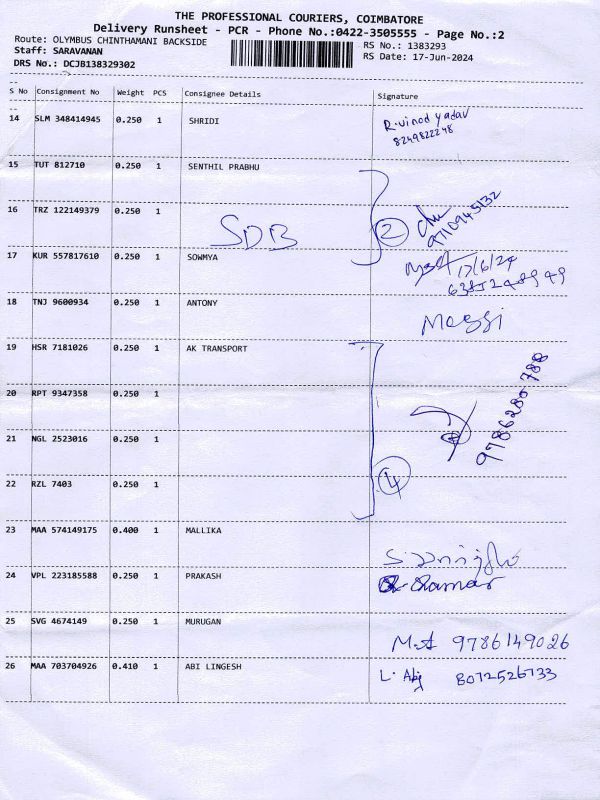 THE PROFESSIONAL COURIERS, COIMBATORE
Delivery Runsheet - PCR - Phone No.:0422-3505555 - Page No.:2
Route: OLYMBUS CHINTHAMANI BACKSIDE
RS No.: 1383293
Staff: SARAVANAN
RS Date: 17-Jun-2024
DRS No.: DCJB138329302
S No Consignment No Weight PCS Consignee Details Signature
14 SLM 348414945 0.250 1 SHRIDI R.vinod yadav
8249822248
15 TUT 812710 0.250 1 SENTHIL PRABHU
16 TRZ 122149379 0.250 1 SDB 2 9710945132
17 KUR 557817610 0.250 1 SOWMYA 17/6/24
18 TNJ 9600934 0.250 1 ANTONY Meggi
19 HSR 7181026 0.250 1 AK TRANSPORT
20 RPT 9347358 0.250 1
9786280788
21 NGL 2523016 0.250 1
22 RZL 7403 0.250 1 4
23 MAA 574149175 0.400 1 MALLIKA
24 VPL 223185588 0.250 1 PRAKASH
25 SVG 4674149 0.250 1 MURUGAN 9786149026
26 MAA 703704926 0.410 1 ABI LINGESH L. Abi 8072526733